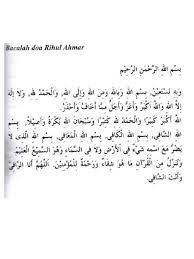 Bacalah doa Rihul Ahmar
بِسْمِ اللهِ الرَّحْمَنِ الرَّحِيْمِ
وَبِهِ نَسْتَعِيْنُ، بِسْمِ اللهِ وَمِنَ اللهِ وَإِلَى اللهِ، وَالْحَمْدُ لِلهِ، وَلَا إِلَهَ
إِلَّا اللهُ وَاللهُ أَكْبَرُ وَأَعَزُّ وَأَجَلُّ مِمَّا أَخَافُ وَأَحْذَرُ.
اللهُ أَكْبَرُ كَبِيْرًا وَالْحَمْدُ لِلهِ كَثِيْرًا وَسُبْحَانَ اللهِ بُكْرَةً وَأَصِيْلًا. بِسْمِ
اللهِ الشَّافِي، بِسْمِ اللهِ الْكَافِي، بِسْمِ اللهِ الْمُعَافِي، بِسْمِ اللهِ الَّذِي لَا
يَضُرُّ مَعَ اسْمِهِ شَيْءٌ فِي الْأَرْضِ وَلَا فِي السَّمَاءِ وَهُوَ السَّمِيْعُ الْعَلِيْمُ
وَنُنَزِّلُ مِنَ الْقُرْآنِ مَا هُوَ شِفَاءٌ وَرَحْمَةٌ لِلْمُؤْمِنِيْنَ. اَللَّهُمَّ أَنَا الرَّاقِي
وَأَنْتَ الشَّافِي